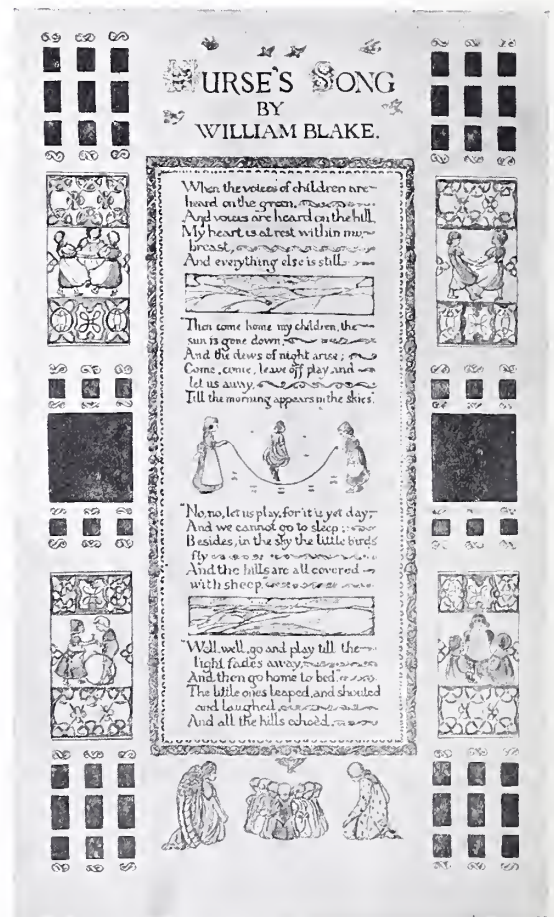 NURSE'S SONG
BY
WILLIAM BLAKE.
When the voices of children are
heard on the green,
And voices are heard on the hill,
My heart is at rest within my
breast,
And everything else is still.
"Then come home my children, the
sun is gone down,
And the dews of night arise;
Come, come, leave off play, and
let us away,
Till the morning appears in the skies."
"No, no, let us play, for it is yet day,
And we cannot go to sleep;
Besides, in the sky the little birds
fly
And the hills are all covered
with sheep.
"Well, well, go and play till the
light fades away,
And then go home to bed.
The little ones leaped, and shouted
and laughed
And all the hills echoed.